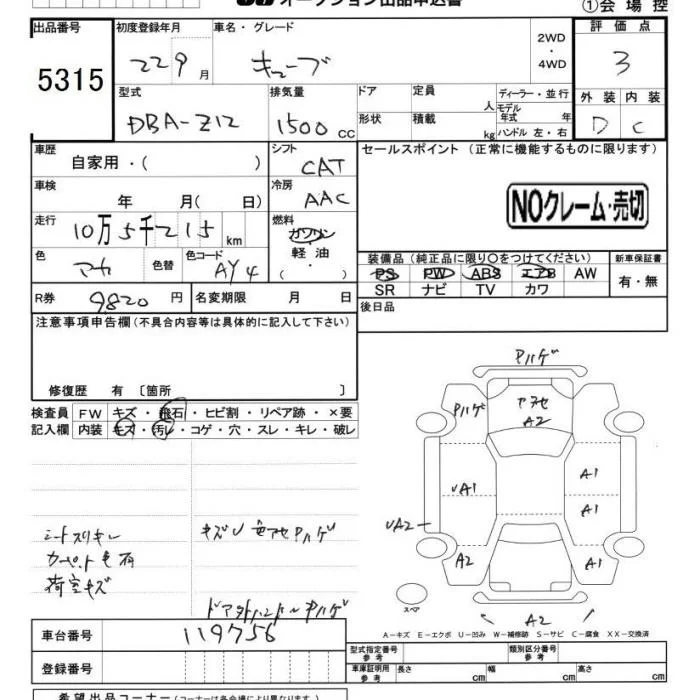 オークション出品申込書
①会場控
出品番号
5315
初度登録年月
22 9月
車名・グレード
キューブ
2WD
・
4WD
評価点
3
型式
DBA-Z12
排気量
1500cc
ドア
形状
定員
人
積載
kg
ディーラー・並行
モデル年式 年
ハンドル 左・右
外装 内装
D C
車歴
自家用・( )
シフト
CAT
セールスポイント (正常に機能するものに限ります)
車検
年 月( 日)
冷房
AAC
NOクレーム・売切
走行
10万5千215km
燃料
ガソリン
軽油
・( )
色
アカ
色替
色コード
AY4
装備品(純正品に限り○をつけてください)
PS PW ABS エアB AW
SR ナビ TV カワ
新車保証書
有・無
R券
9820円
名変期限 月 日
後日品
注意事項申告欄(不具合内容等は具体的に記入して下さい)
修復歴 有 〔箇所 〕
検査員
記入欄
FW キズ・飛石・ヒビ割・リペア跡・×要
内装 キズ・汚レ・コゲ・穴・スレ・キレ・破レ
シートスリキレ
カーペット毛有
荷室キズ
キズU色アセPハゲ
ドアアウトハンドルPハゲ
Pハゲ
Pハゲ
アスセ
A2
UA1
A1
A1
UA2
A2
A1
A2
スペア
A-キズ E-エクボ U-凹み W-補修跡 S-サビ C-腐食 XX-交換済
車台番号
119756
登録番号
型式指定番号
参考
類別区分番号
参考
車庫証明用
参考
長さ cm
幅 cm
高さ cm
希望出品コーナー(コーナーは各会場により異なります。)